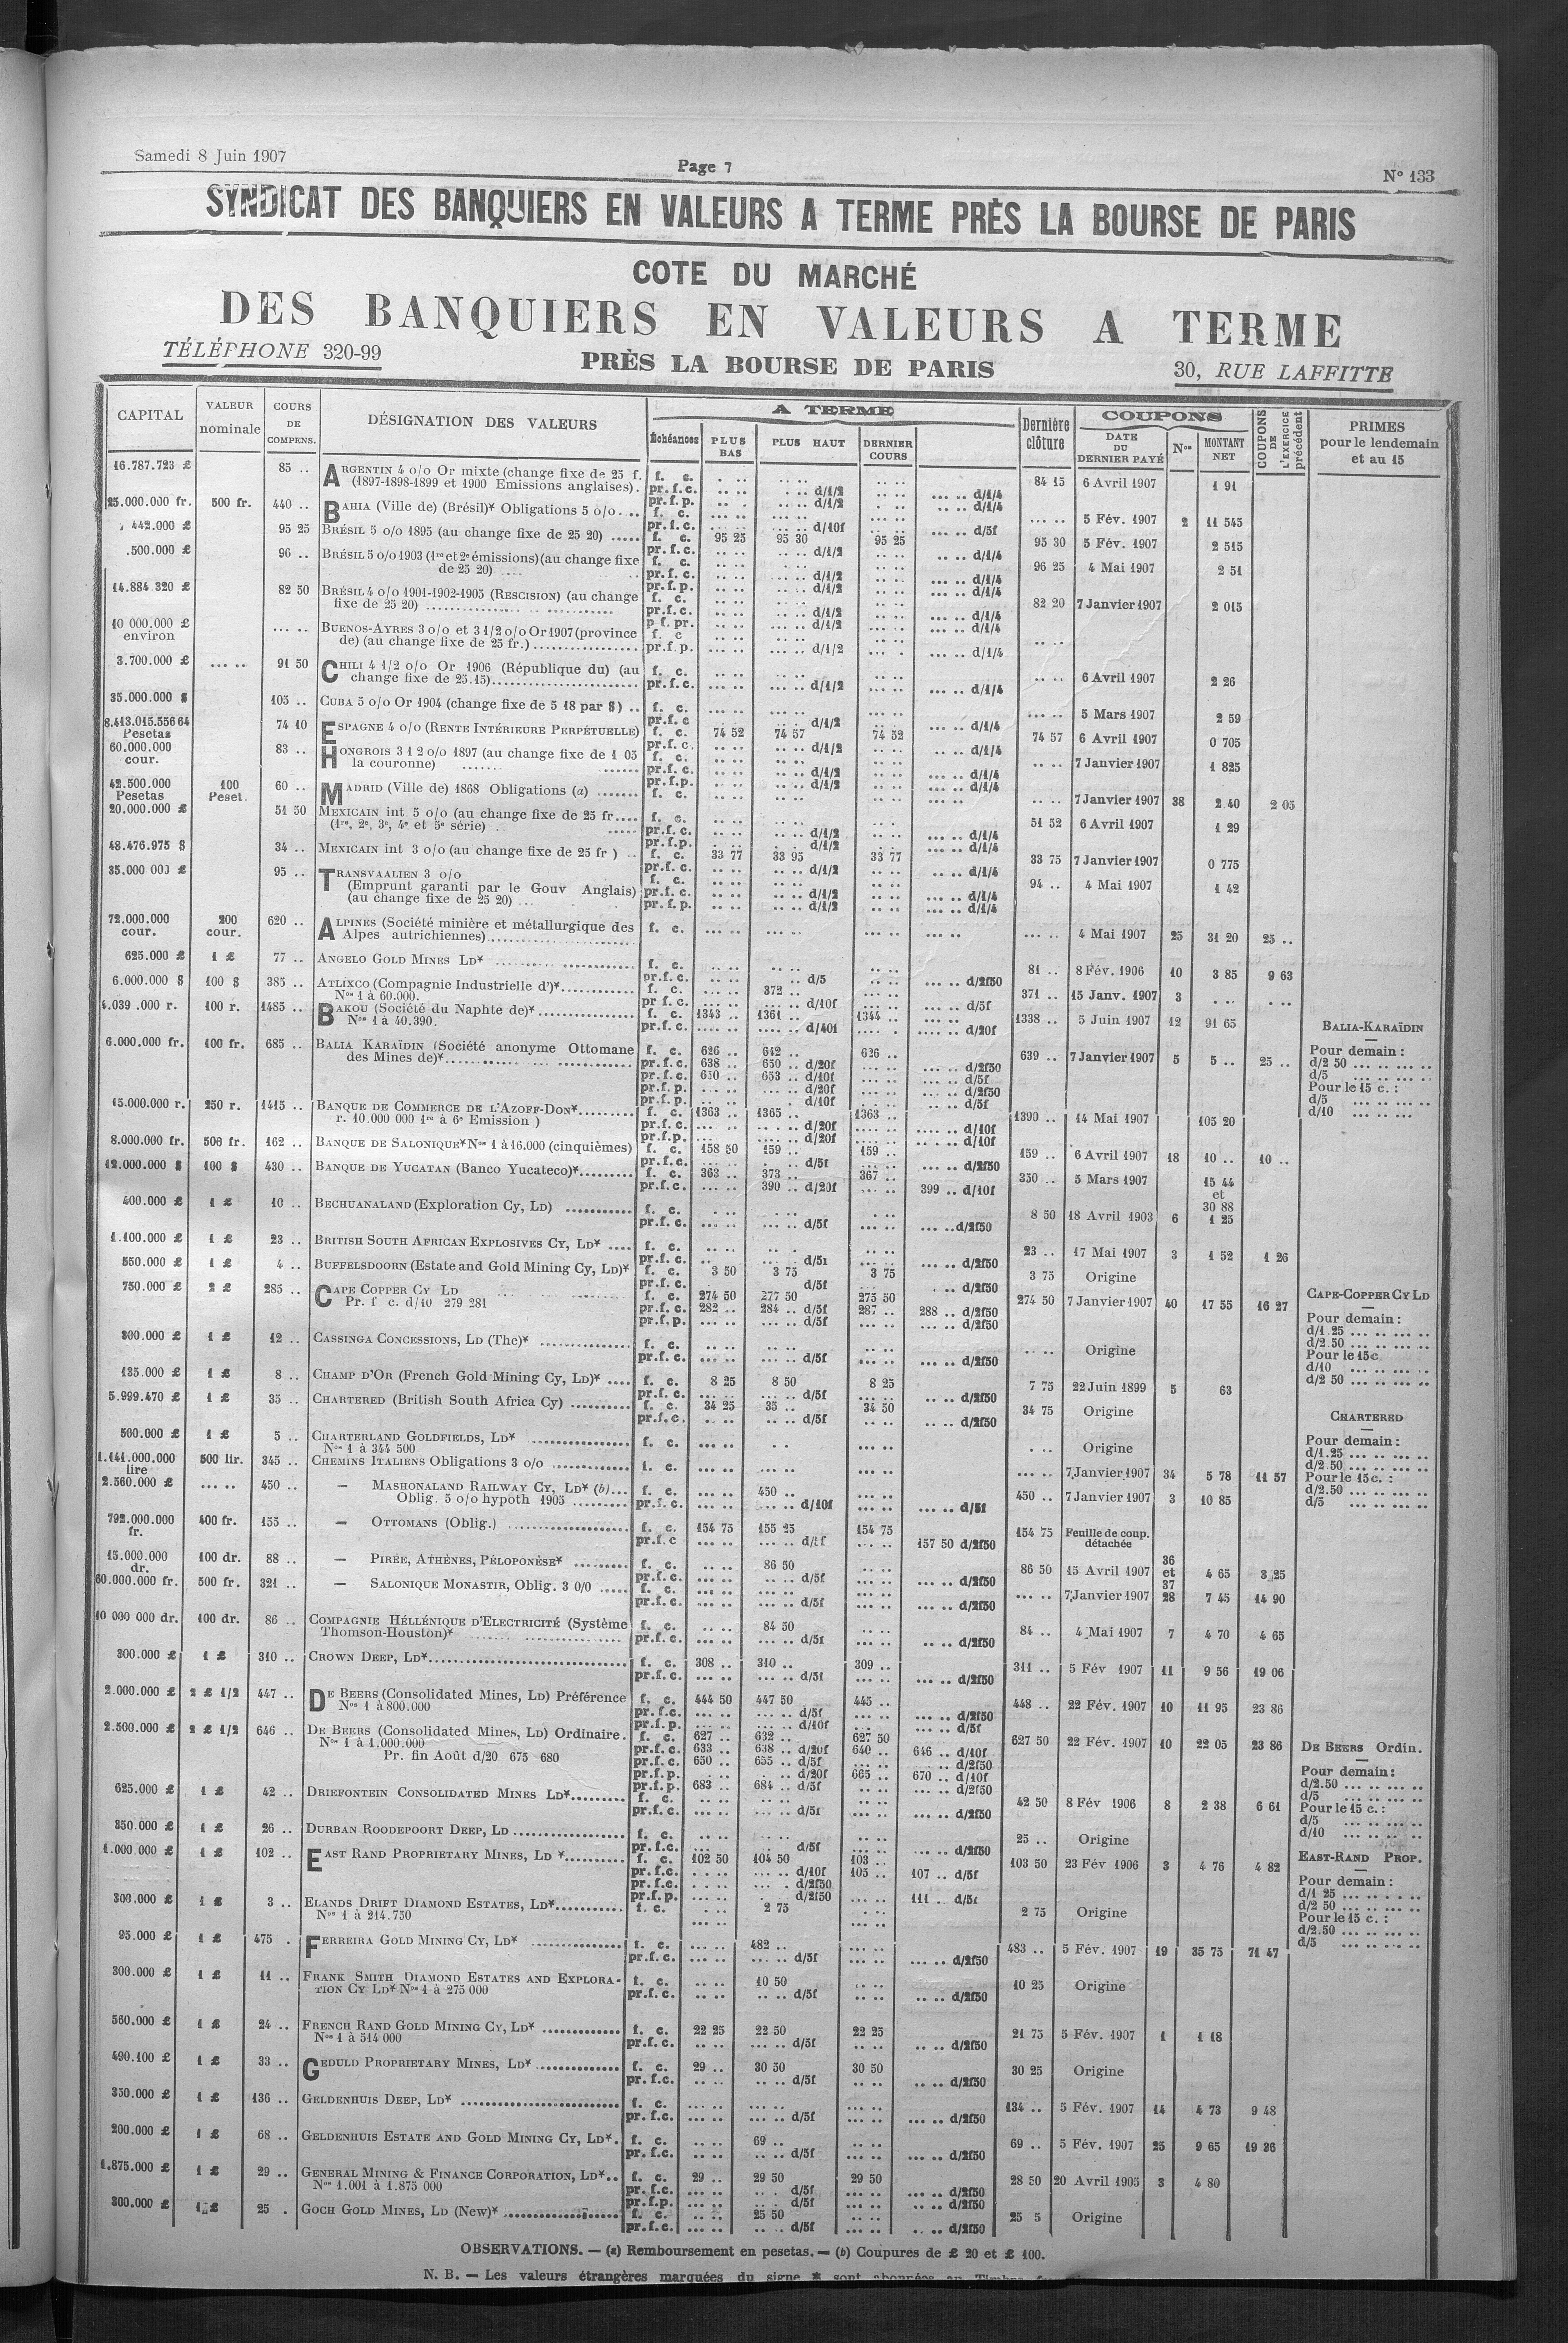 Samedi 8 Juin 1907
Page 7
N° 133
SYNDICAT DES BANQUIERS EN VALEURS A TERME PRÈS LA BOURSE DE PARIS
COTE DU MARCHÉ
DES BANQUIERS EN VALEURS A TERME
TÉLÉPHONE 320-99
PRÈS LA BOURSE DE PARIS
30, RUE LAFFITTE
CAPITAL VALEUR nominale COURS DE COMPENS. DÉSIGNATION DES VALEURS A TERME Échéances PLUS BAS PLUS HAUT DERNIER COURS Dernière clôture COUPONS DATE DU DERNIER PAYÉ Nos MONTANT NET COUPONS DE L'EXERCICE précédent PRIMES pour le lendemain et au 15
16.787.723 £ 85 .. ARGENTIN 4 o/o Or mixte (change fixe de 25 f. f. c. 84 15 6 Avril 1907 1 91
(1897-1898-1899 et 1900 Emissions anglaises). pr.f.c. d/1/2 d/1/4
pr.f.p. d/1/2 d/1/4
25.000.000 fr. 500 fr. 440 .. BAHIA (Ville de) (Brésil)* Obligations 5 o/o .... f. c. 5 Fév. 1907 2 11 545
pr.f.c. d/10f d/5f
442.000 £ 95 25 BRÉSIL 5 o/o 1895 (au change fixe de 25 20) ..... f. c. 95 25 95 30 95 25 95 30 5 Fév. 1907 2 515
pr.f.c. d/1/2 d/1/4
.500.000 £ 96 .. BRÉSIL 5 o/o 1903 (1re et 2e émissions) (au change fixe f. c. 96 25 4 Mai 1907 2 51
de 25 20) .... pr.f.c. d/1/2 d/1/4
pr.f.p. d/1/2 d/1/4
14.884.320 £ 82 50 BRÉSIL 4 o/o 1901-1902-1905 (RESCISION) (au change f. c. 82 20 7 Janvier 1907 2 015
fixe de 25 20) pr.f.c. d/1/2 d/1/4
p f. pr. d/1/2 d/1/4
10 000.000 £ environ BUENOS-AYRES 3 o/o et 3 1/2 o/o Or 1907 (province f. c
de) (au change fixe de 25 fr.) pr.f.p. d/1/2 d/1/4
3.700.000 £ 91 50 CHILI 4 1/2 o/o Or 1906 (République du) (au f. c. 6 Avril 1907 2 26
change fixe de 25.15) pr.f.c. d/1/2 d/1/4
35.000.000 $ 105 .. CUBA 5 o/o Or 1904 (change fixe de 5 18 par $) .. f. c. 5 Mars 1907 2 59
pr.f.c d/1/2 d/1/4
8.413.015.556 64 Pesetas 74 10 ESPAGNE 4 o/o (RENTE INTÉRIEURE PERPÉTUELLE) f. c. 74 52 74 57 74 52 74 57 6 Avril 1907 0 705
pr.f.c. d/1/2 d/1/4
60.000.000 cour. 83 .. HONGROIS 3 1 2 o/o 1897 (au change fixe de 1 05 f. c. 7 Janvier 1907 1 825
la couronne) pr.f.c. d/1/2 d/1/4
pr.f.p. d/1/2 d/1/4
42.500.000 Pesetas 100 Peset. 60 .. MADRID (Ville de) 1868 Obligations (a) ....... f. c. 7 Janvier 1907 38 2 40 2 05
20.000.000 £ 51 50 MEXICAIN int 5 o/o (au change fixe de 25 fr.... f. c. 51 52 6 Avril 1907 1 29
(1re, 2e, 3e, 4e et 5e série) pr.f.c. d/1/2 d/1/4
pr.f.p. d/1/2 d/1/4
48.476.975 $ 34 .. MEXICAIN int 3 o/o (au change fixe de 25 fr ) .. f. c. 33 77 33 95 33 77 33 75 7 Janvier 1907 0 775
pr.f.c. d/1/2 d/1/4
35.000 000 £ 95 .. TRANSVAALIEN 3 o/o f. c. 94 .. 4 Mai 1907 1 42
(Emprunt garanti par le Gouv Anglais) pr.f.c. d/1/2 d/1/4
(au change fixe de 25 20) pr.f.p. d/1/2 d/1/4
72.000.000 cour. 200 cour. 620 .. ALPINES (Société minière et métallurgique des f. c. 4 Mai 1907 25 31 20 25 ..
Alpes autrichiennes)
625.000 £ 1 £ 77 .. ANGELO GOLD MINES LD* f. c. 81 .. 8 Fév. 1906 10 3 85 9 63
pr.f.c. d/5 d/2f50
6.000.000 $ 100 $ 385 .. ATLIXCO (Compagnie Industrielle d')* f. c. 372 .. 371 .. 15 Janv. 1907 3
Nos 1 à 60.000. pr f.c. d/10f d/5f
4.039 .000 r. 100 r. 1485 .. BAKOU (Société du Naphte de)* f. c. 1343 .. 1361 .. 1344 .. 1338 .. 5 Juin 1907 12 91 65
Nos 1 à 40.390. pr.f.c. d/40f d/20f
6.000.000 fr. 100 fr. 685 .. BALIA KARAÏDIN (Société anonyme Ottomane f. c. 626 .. 642 .. 626 .. 639 .. 7 Janvier 1907 5 5 .. 25 ..
des Mines de)* pr.f.c. 638 .. 650 .. d/20f d/2f50
pr.f.c. 650 .. 653 .. d/10f d/5f
pr.f.p. d/20f d/2f50
pr.f.p. d/10f d/5f
BALIA-KARAÏDIN
Pour demain :
d/2 50
d/5
Pour le 15 c. :
d/5
d/10
15.000.000 r. 250 r. 1415 .. BANQUE DE COMMERCE DE L'AZOFF-DON* f. c. 1363 .. 1365 .. 1363 .. 1390 .. 14 Mai 1907 105 20
r. 10.000 000 1re à 6e Emission ) pr.f.c. d/20f d/10f
pr.f.p. d/20f d/10f
8.000.000 fr. 500 fr. 162 .. BANQUE DE SALONIQUE* Nos 1 à 16.000 (cinquièmes) f. c. 158 50 159 .. 159 .. 159 .. 6 Avril 1907 18 10 .. 10 ..
pr.f.c. d/5f d/2f50
12.000.000 $ 100 $ 430 .. BANQUE DE YUCATAN (Banco Yucateco)* f. c. 363 .. 373 .. 367 .. 350 .. 5 Mars 1907 15 44 et 30 88
pr.f.c. 390 .. d/20f 399 .. d/10f
400.000 £ 1 £ 10 .. BECHUANALAND (Exploration Cy, LD) f. c. 8 50 18 Avril 1903 6 1 25
pr.f.c. d/5f d/2f50
1.100.000 £ 1 £ 23 .. BRITISH SOUTH AFRICAN EXPLOSIVES CY, LD* .... f. c. 23 .. 17 Mai 1907 3 1 52 1 26
pr.f.c. d/5f d/2f50
550.000 £ 1 £ 4 .. BUFFELSDOORN (Estate and Gold Mining Cy, LD)* f. c. 3 50 3 75 3 75 3 75 Origine
pr.f.c. d/5f d/2f50
750.000 £ 2 £ 285 .. CAPE COPPER CY LD f. c. 274 50 277 50 275 50 274 50 7 Janvier 1907 40 17 55 16 27
Pr. f c. d/10 279 281 pr.f.c. 282 .. 284 .. d/5f 287 .. 288 .. d/2f50
pr.f.p. d/5f d/2f50
CAPE-COPPER CY LD
Pour demain :
d/1.25
d/2.50
Pour le 15 c.
d/10
d/2 50
300.000 £ 1 £ 12 .. CASSINGA CONCESSIONS, LD (The)* f. c. Origine
pr.f.c. d/5f d/2f50
135.000 £ 1 £ 8 .. CHAMP D'OR (French Gold Mining Cy, LD)* .... f. c. 8 25 8 50 8 25 7 75 22 Juin 1899 5 63
pr.f.c. d/5f d/2f50
5.999.470 £ 1 £ 35 .. CHARTERED (British South Africa Cy) f. c. 34 25 35 .. 34 50 34 75 Origine
pr.f.c. d/5f d/2f50
CHARTERED
Pour demain :
d/1.25
d/2.50
Pour le 15 c. :
d/2.50
d/5
500.000 £ 1 £ 5 .. CHARTERLAND GOLDFIELDS, LD* f. c. Origine
Nos 1 à 344 500
1.441.000.000 lire 500 lir. 345 .. CHEMINS ITALIENS Obligations 3 o/o f. c. 7 Janvier 1907 34 5 78 11 57
2.560.000 £ 450 .. — MASHONALAND RAILWAY CY, LD* (b)... f. c. 450 .. 450 .. 7 Janvier 1907 3 10 85
Oblig. 5 o/o hypoth 1905 pr.f.c. d/10f d/5f
792.000.000 fr. 400 fr. 155 .. — OTTOMANS (Oblig.) f. c. 154 75 155 25 154 75 154 75 Feuille de coup. détachée
pr.f.c 157 50 d/2f50
15.000.000 dr. 100 dr. 88 .. — PIRÉE, ATHÈNES, PÉLOPONÈSE* f. c. 86 50 86 50 15 Avril 1907 36 et 37 4 65 3 25
pr.f.c. d/5f d/2f50
60.000.000 fr. 500 fr. 321 .. — SALONIQUE MONASTIR, Oblig. 3 0/0 ..... f. c. 7 Janvier 1907 28 7 45 14 90
pr.f.c. d/5f d/2f50
10 000 000 dr. 100 dr. 86 .. COMPAGNIE HÉLLÉNIQUE D'ELECTRICITÉ (Système f. c. 84 50 84 .. 4 Mai 1907 7 4 70 4 65
Thomson-Houston)* pr.f.c. d/5f d/2f50
300.000 £ 1 £ 310 .. CROWN DEEP, LD* f. c. 308 .. 310 .. 309 .. 311 .. 5 Fév 1907 11 9 56 19 06
pr.f.c. d/5f d/2f50
2.000.000 £ 2 £ 1/2 447 .. DE BEERS (Consolidated Mines, LD) Préférence f. c. 444 50 447 50 445 .. 448 .. 22 Fév. 1907 10 11 95 23 86
Nos 1 à 800.000 pr.f.c. d/5f d/2f50
pr.f.p. d/10f d/5f
2.500.000 £ 2 £ 1/2 646 .. DE BEERS (Consolidated Mines, LD) Ordinaire. f. c. 627 .. 632 .. 627 50 627 50 22 Fév. 1907 10 22 05 23 86
Nos 1 à 1.000.000 pr.f.c. 633 .. 638 .. d/20f 640 .. 646 .. d/10f
Pr. fin Août d/20 675 680 pr.f.c. 650 .. 655 .. d/5f d/2f50
pr.f.p. d/20f 665 .. 670 .. d/10f
pr.f.p. 683 .. 684 .. d/5f d/2f50
DE BEERS Ordin.
Pour demain :
d/2.50
d/5
Pour le 15 c. :
d/5
d/10
625.000 £ 1 £ 42 .. DRIEFONTEIN CONSOLIDATED MINES LD* f. c. 42 50 8 Fév 1906 8 2 38 6 61
pr.f.c. d/5f d/2f50
350.000 £ 1 £ 26 .. DURBAN ROODEPOORT DEEP, LD f. c. 25 .. Origine
pr.f.c. d/5f d/2f50
1.000.000 £ 1 £ 102 .. EAST RAND PROPRIETARY MINES, LD * f. c. 102 50 104 50 103 .. 103 50 23 Fév 1906 3 4 76 4 82
pr.f.c. d/10f 105 .. 107 .. d/5f
pr.f.c. d/2f50
pr.f.p. d/2f50 111 .. d/5f
EAST-RAND PROP.
Pour demain :
d/1 25
d/2 50
Pour le 15 c. :
d/2.50
d/5
300.000 £ 1 £ 3 .. ELANDS DRIFT DIAMOND ESTATES, LD* f. c. 2 75 2 75 Origine
Nos 1 à 214.750
95.000 £ 1 £ 475 . FERREIRA GOLD MINING CY, LD* f. c. 482 .. 483 .. 5 Fév. 1907 19 35 75 71 47
pr.f.c. d/5f d/2f50
300.000 £ 1 £ 11 .. FRANK SMITH DIAMOND ESTATES AND EXPLORA- f. c. 10 50 10 25 Origine
TION CY LD* Nos 1 à 275 000 pr.f.c. d/5f d/2f50
560.000 £ 1 £ 24 .. FRENCH RAND GOLD MINING CY, LD* f. c. 22 25 22 50 22 25 21 75 5 Fév. 1907 1 1 18
Nos 1 à 514 000 pr.f.c. d/5f d/2f50
490.100 £ 1 £ 33 .. GEDULD PROPRIETARY MINES, LD* f. c. 29 .. 30 50 30 50 30 25 Origine
pr.f.c. d/5f d/2f50
350.000 £ 1 £ 136 .. GELDENHUIS DEEP, LD* f. c. 134 .. 5 Fév. 1907 14 4 73 9 48
pr. f.c. d/5f d/2f50
200.000 £ 1 £ 68 .. GELDENHUIS ESTATE AND GOLD MINING CY, LD*. f. c. 69 .. 69 .. 5 Fév. 1907 25 9 65 19 36
pr. f.c. d/5f d/2f50
1.875.000 £ 1 £ 29 .. GENERAL MINING & FINANCE CORPORATION, LD*.. f. c. 29 .. 29 50 29 50 28 50 20 Avril 1905 3 4 80
Nos 1.001 à 1.875 000 pr. f.c. d/5f d/2f50
pr.f.p. d/5f d/2f50
300.000 £ 1 £ 25 . GOCH GOLD MINES, LD (New)* f. c. 25 50 25 5 Origine
pr.f.c. d/5f d/2f50
OBSERVATIONS. — (a) Remboursement en pesetas. — (b) Coupures de £ 20 et £ 100.
N. B. — Les valeurs étrangères marquées du signe * sont abonnées au